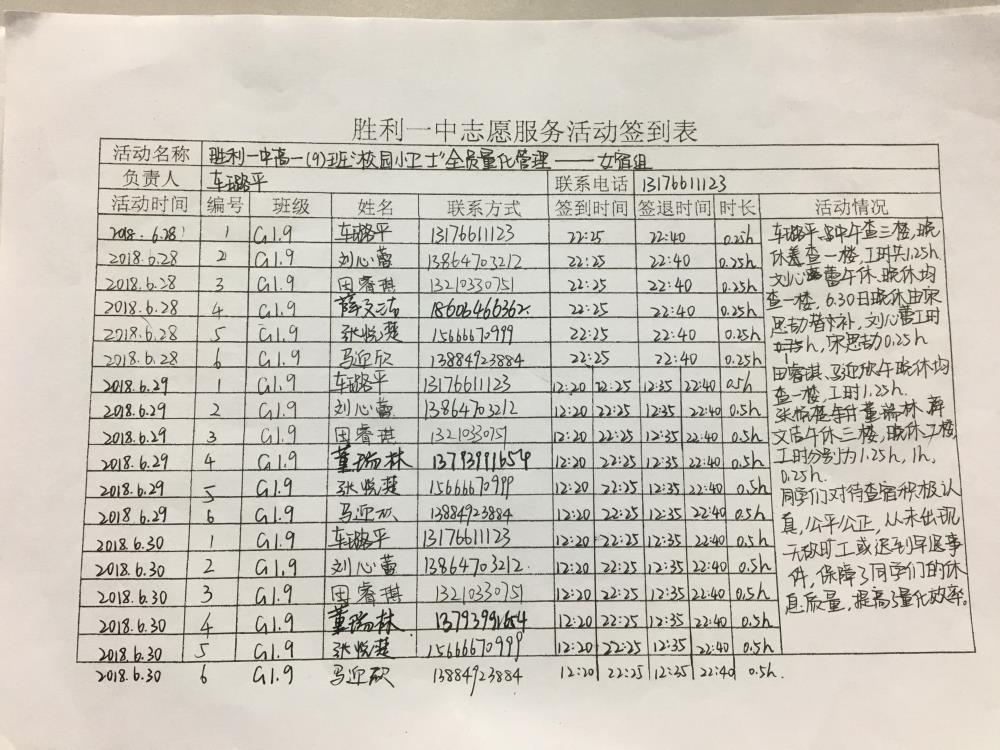 胜利一中志愿服务活动签到表
活动名称 胜利一中高一(9)班"校园小卫士"全员量化管理——女宿组
负责人 车璐平 联系电话 13176611123
活动时间 编号 班级 姓名 联系方式 签到时间 签退时间 时长 活动情况
2018.6.28 1 G1.9 车璐平 13176611123 22:25 22:40 0.25h
2018.6.28 2 G1.9 刘心蕾 13864703212 22:25 22:40 0.25h
2018.6.28 3 G1.9 田睿琪 13210330751 22:25 22:40 0.25h
2018.6.28 4 G1.9 薛文洁 18606466362. 22:25 22:40 0.25h
2018.6.28 5 G1.9 张悦楚 15666670999 22:25 22:40 0.25h
2018.6.28 6 G1.9 马迎欣 13884923884 22:25 22:40 0.25h
2018.6.29 1 G1.9 车璐平 13176611123 12:20 22:25 12:35 22:40 0.5h
2018.6.29 2 G1.9 刘心蕾 13864703212 12:20 22:25 12:35 22:40 0.5h
2018.6.29 3 G1.9 田睿琪 13210330751 12:20 22:25 12:35 22:40 0.5h
2018.6.29 4 G1.9 董瑞林 13793991654 12:20 22:25 12:35 22:40 0.5h
2018.6.29 5 G1.9 张悦楚 15666670999 12:20 22:25 12:35 22:40 0.5h
2018.6.29 6 G1.9 马迎欣 13884923884 12:20 22:25 12:35 22:40 0.5h
2018.6.30 1 G1.9 车璐平 13176611123 12:20 22:25 12:35 22:40 0.5h
2018.6.30 2 G1.9 刘心蕾 13864703212. 12:20 22:25 12:35 22:40 0.5h
2018.6.30 3 G1.9 田睿琪 13210330751 12:20 22:25 12:35 22:40 0.5h
2018.6.30 4 G1.9 董瑞林 13793991654 12:20 22:25 12:35 22:40 0.5h
2018.6.30 5 G1.9 张悦楚 15666670999 12:20 22:25 12:35 22:40 0.5h
2018.6.30 6 G1.9 马迎欣 13884923884 12:20 22:25 12:35 22:40 0.5h.
车璐平 中午查三楼,晚
休 查一楼,工时共1.25h.
刘心蕾午休、晚休均
查一楼, 6.30日晚休由宋
思劼替补, 刘心蕾工时
1h, 宋思劼0.25h
田睿琪、马迎欣午晚休均
查一楼,工时1.25h.
张悦楚 董瑞林 薛
文洁午休三楼,晚休 楼,
工时分别为1.25h, 1h,
0.25h.
同学们对待查宿积极认
真,公平公正,从未出现
无故旷工或迟到早退事
件,保障了同学们的休
息质量,提高了量化效率。